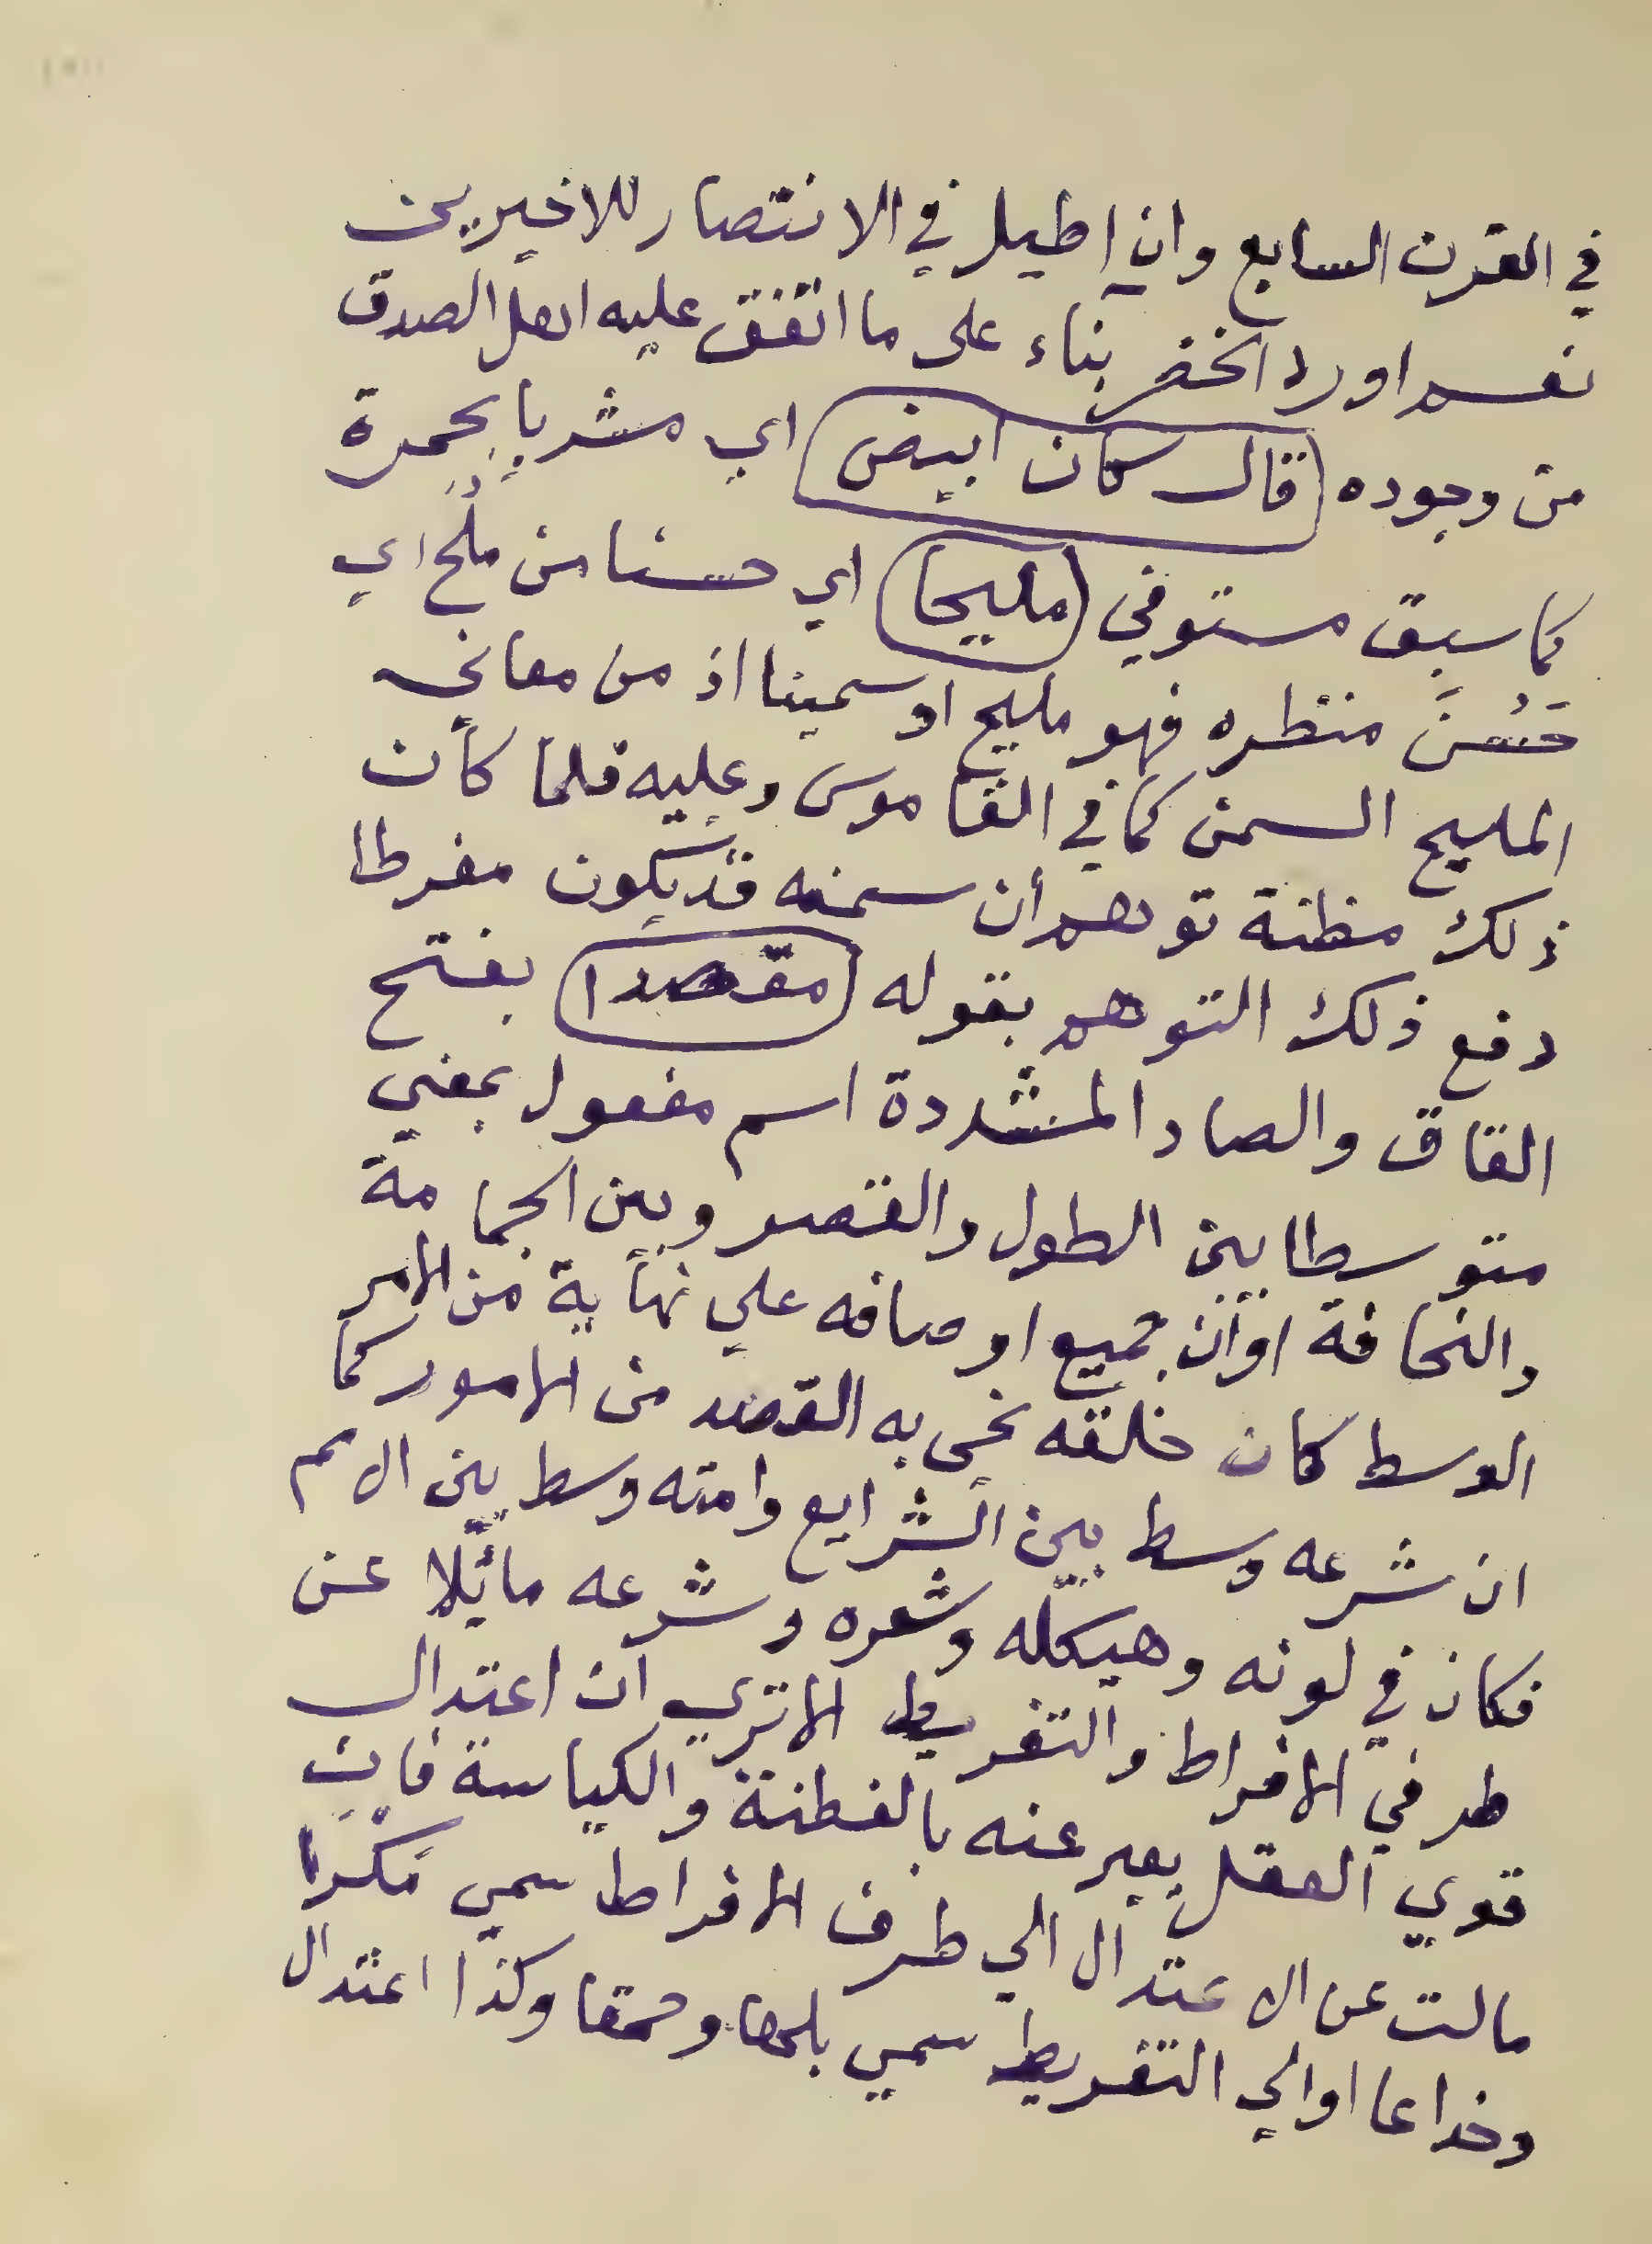 في القرن السابع وان اطيل في الانتصار للاخيرين
نعم اورد الخضر بناء على ما اتفق عليه اهل الصدق
من وجوده (قال كان ابيض) اي مشربا بحمرة
كما سبق مستوفي (مليحا) اي حسنا من ملُح اي
حَسُنَ منظره فهو مليح او سمينا اذ من معاني
المليح السمن كما في القاموس وعليه فلما كان
ذلك مظنة توهم أن سمنه قد يكون مفرطا
دفع ذلك التوهم بقوله (مقصدا) بفتح
القاف والصاد المشددة اسم مفعول بمعني
متوسطا بين الطول والقصر وبين الجسامة
والنحافة او أن جميع اوصافه علي نهاية من الامر
الوسط كان خلقه نحى به القصد من الامور كما
ان شرعه وسط بين الشرايع وامته وسط بين الامم
فكان في لونه وهيكله وشعره وشرعه مائلا عن
طرفي الافراط والتفريط الا تري ان اعتدال
قوي العقل يعبر عنه بالفطنة والكياسة فان
مالت عن الاعتدال الي طرف الافراط سمي مَكْرا
وخداعا اوالي التفريط سمي بلها وحمقا وكذا اعتدال